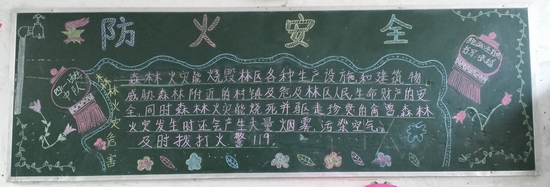 防火安全
森林火灾危害
森林火灾能烧毁林区各种生产设施和建筑物
威胁森林附近的村镇及危及林区人民生命财产的安
全,同时森林火灾能烧死并驱走珍贵的禽兽。森林
火灾发生时还会产生大量烟雾,污染空气。
及时拨打火警119。